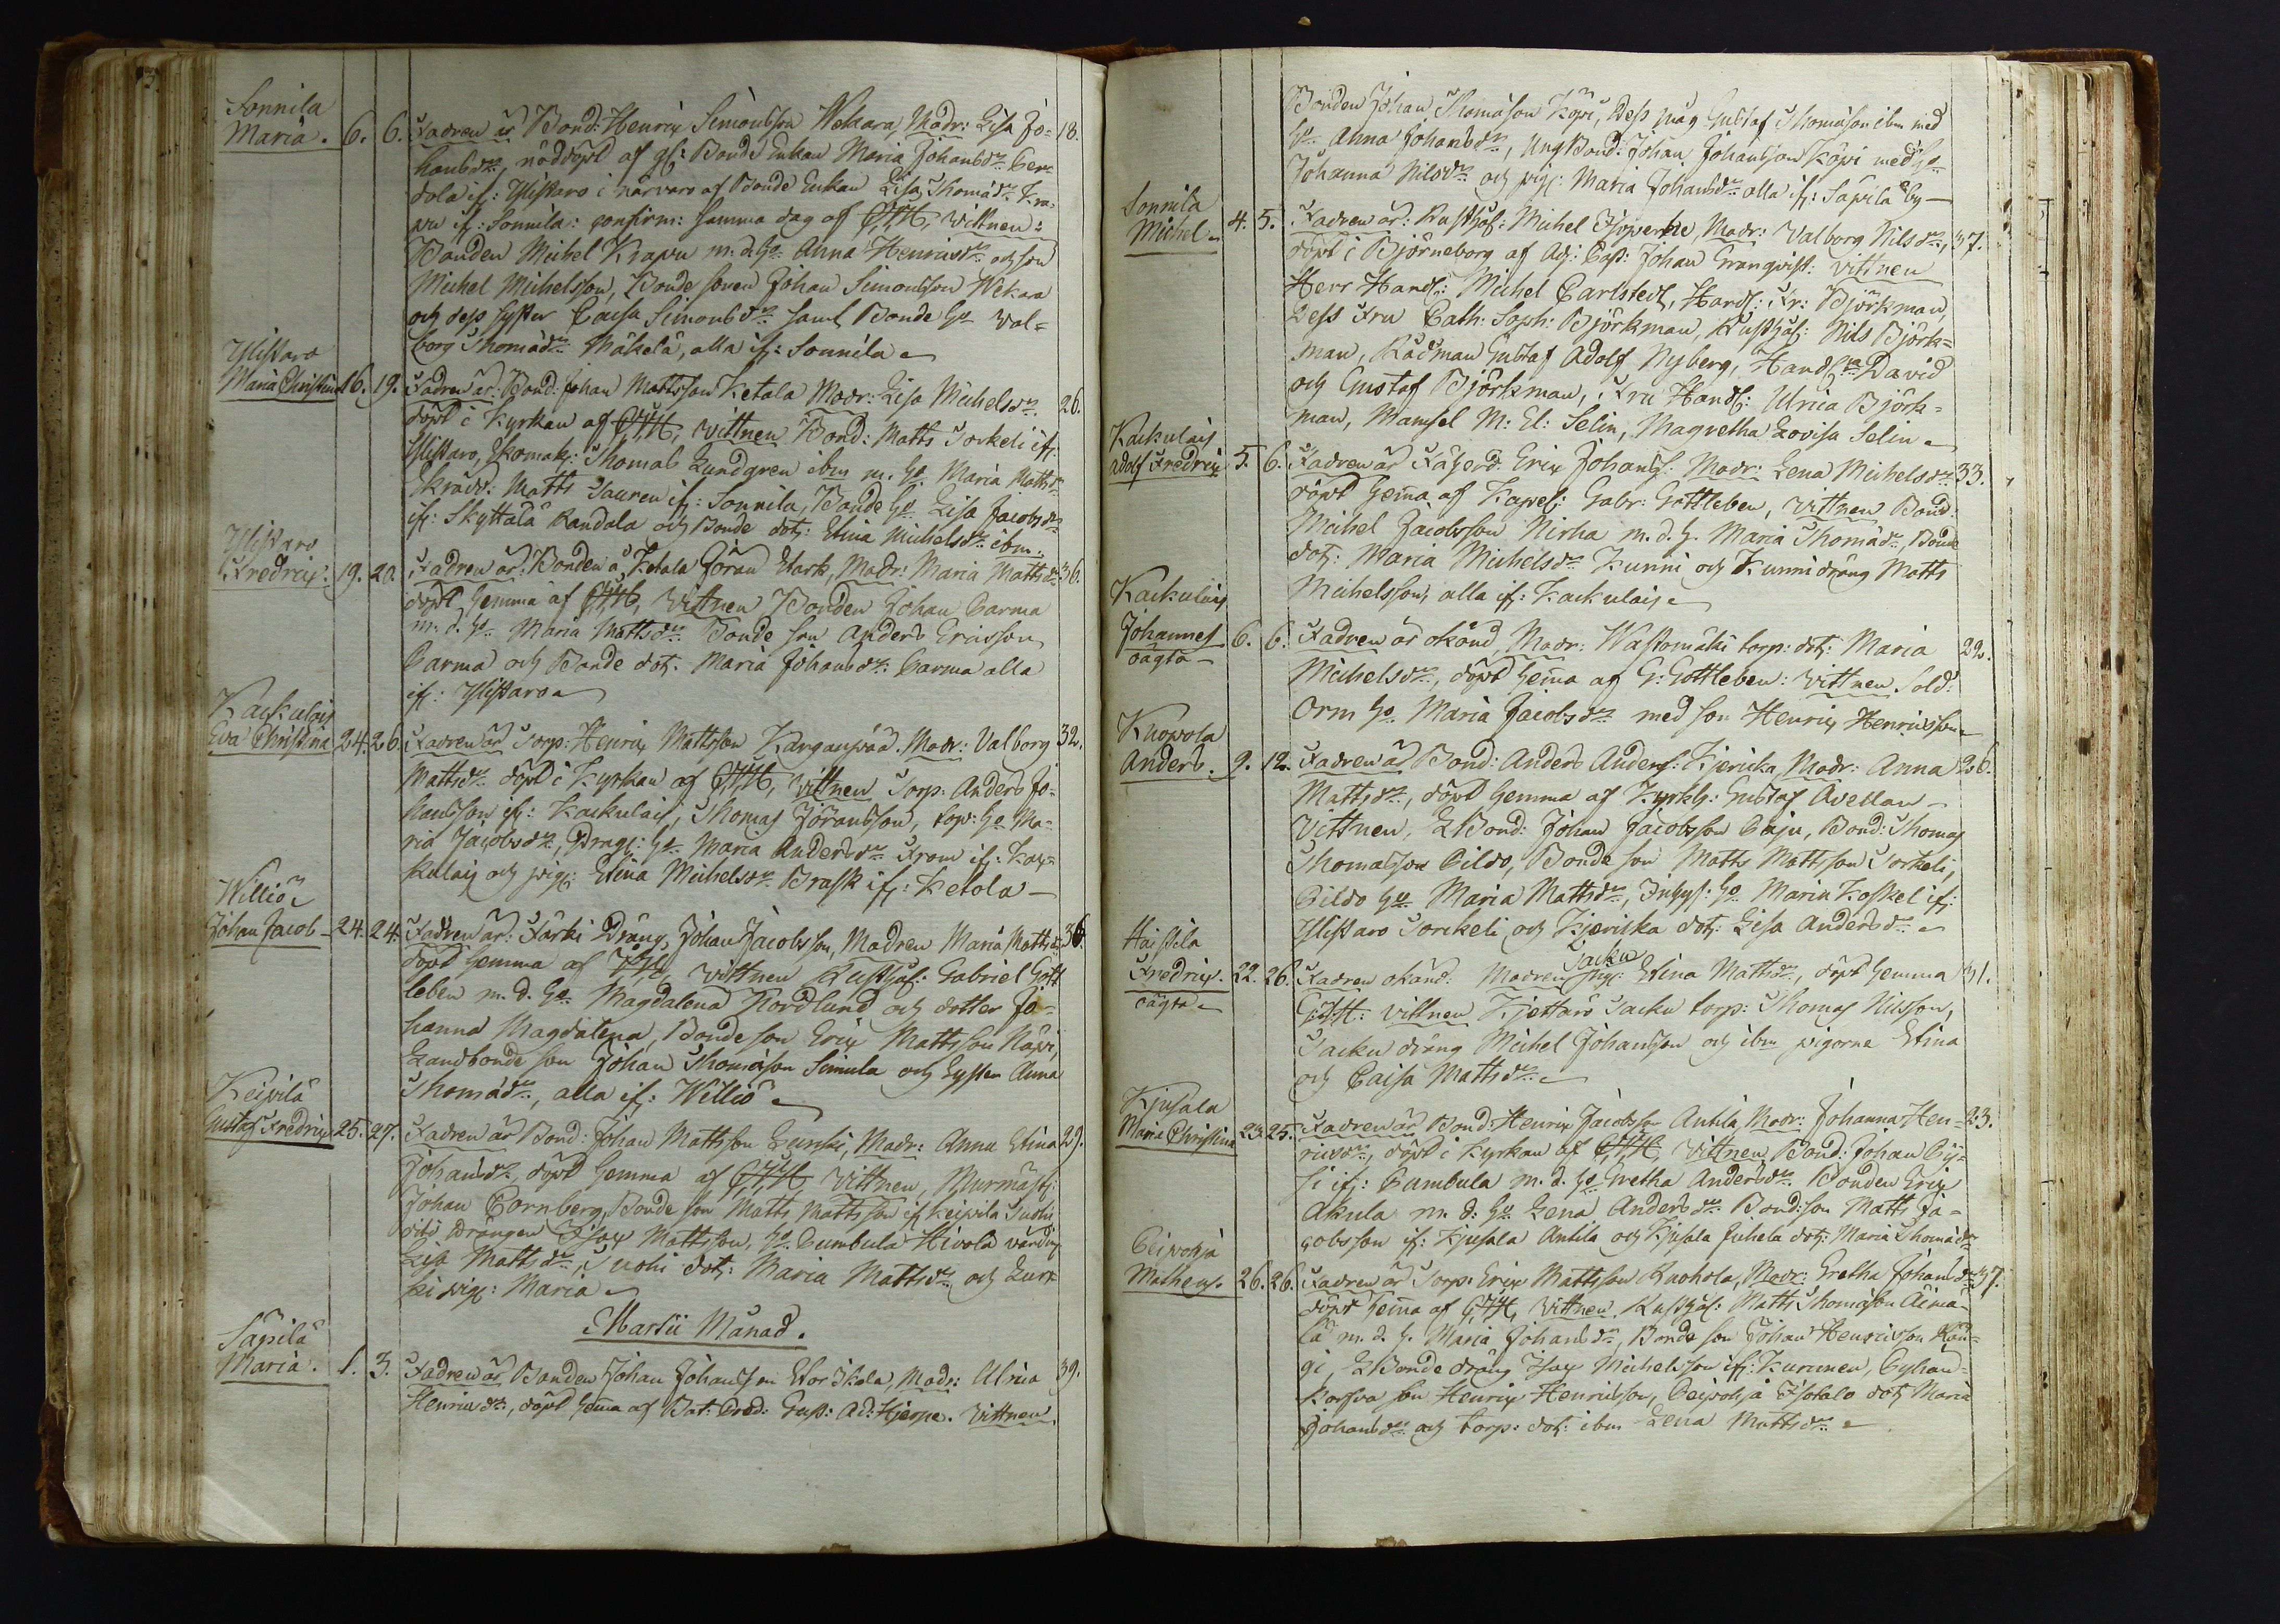 Sonnila
Maria. 6. 6. Fadren är Bond: Henrix Simonsson Wekara, Madr: Lisa Jo= 18.
hansdr, nöddöpt af gl: Bonde Enkan Maria Johansdr
dola ifr: Ylistaro i närvaro af Bonde Enkan Lisa Thomädr Kra=
pu ifr: Sonnila: confirm: samma dag af vittnen:
Bonden Michel Krapu m. d. Ho Anna Henrixdr och son
Michel Michelsson, Bonde sonen Johan Simonsson Wekara
och dess syster Caisa Simonsdr samt Bonde Ho Val=
borg Thomädr Mäkelä, alla ifr: Sonnila
Ylistaro
Maria Christina 16. 19. Fadren är: Bond: Johan Mattsson Ketala Modr: Lisa Michelsdr 26.
döpt i Kyrkan af vittnen Bond: Matts Sorkeli ifr:
Ylistaro, Skomak: Thomas Lundgren ibm m. Ho Maria Mattsdr
Skrädd: Matts Sauren ifr: Sonnila, Bonde Ho Lisa Jacobsdr
ifr: Skyttälä Kandala och Bonde dotr: Stina Michelsdr ibm.
Ylistaro
Fredrix 19. 20. Fadren är: Bonden å Ketala Jöran Stark, Madr: Maria Mattsdr 36.
döpt hemma af Vittnen Bonden Johan Carma
m. d. Ho Maria Mattsdr Bonde son Anders Ericsson
Carma och Bonde dotr. Maria Johansdr Carma alla
ifr: Ylistaro
Kaskulais
Eva Christina 24. 26. Fadren är Torp: Henrix Mattsson Kanganpää. Modr: Valborg 32.
Mattsdr döpt i Kyrkan af vittnen Torp: Anders Jo=
hansson ifr: Kaskulais, Thomas Jöransson, torp: Ho Ma=
ria Jacobsdr, Drag: Ho Maria Andersdr From ifr: Kas=
kulais och pig: Stina Michelsdr Brask ifr: Ketola
Williö
Johan Jacob 24. 24. Fadren är: Särki Dräng, Johan Jacobsson, Madren Maria Mattsdr 36.
döpt hemma af vittnen Rusthål: Gabriel Gott
leben m. d. Ho Magdalena Nordlund och dotter Jo=
hanna Magdalena, Bonde son Erix Mattsson Näpi,
Landbonde son Johan Thomäson Simula och Syster Anna
Thomädr, alla ifr: Williö
Keipilä
Gustaf Fredrix 25. 27. Fadren är Bond: Johan Mattsson Lurski, Madr: Anna Stina 29.
Johansdr, döpt hemma af Vittnen, Murmäst:
Johan Cornberg, Bonde son Matts Mattsson ifr Keipila Suohi
drängen Isax Mattsson, Ho Cumbula Hivola värdin
Lisa Mattsdr, Suohi dotr: Maria Mattsdr och Lurs
ki pig: Maria
Martii Månad.
Säpilä
Maria. 1. 3. Fadren är Bonden Johan Johansson Stor Skola, Madr: Ulrica 39.
Henrixdr, döpt hema af Bat: Pred: Gust: Ad: Hjerpe. Vittnen
Bonden Johan Thomäson Köpi, dess måg Gustaf Thomäson ibm med
Ho Anna Johansdr, Ung Bond: Johan Johansson Köpi med Ho
Johanna Nilsdr och pig: Maria Johansdr alla ifr: Säpilä by
Sonnila
Michel 4. 5. Fadren är: Rusthål: Michel Isoperhe, Madr: Valborg Nilsdr, 37.
döpt i Björneborg af Adj: Past: Johan Granqvist: vittnen
Herr Handl: Michel Carlstedt, Handl: Fr: Björkman,
dess Fru Cath: Soph: Björkman, Rusthål: Nils Björk=
man, Rådman Gustaf Adolf Nyberg, Handl David
och Gustaf Björkman, Fru Handl: Ulrica Björk=
man, Mamsel M: El: Selin, Magretha Lovisa Selin
Kaskulais
Adolf Fredrix 5. 6. Fadren är Erix Johanss: Modr: Lena Michelsdr 33.
döpt hema af Kapel: Gabr: Gottleben, vittnen Bond:
Michel Jacobsson Nirha m. d. H. Maria Thomädr, Bonde
dotr: Maria Michelsdr Kunni och Kunni dräng Matts
Michelsson, alla ifr: Kaskulais
Kaskulais
Johannes 6. 6. Fadren är okänd, Modr: Wastomäki torp: dotr: Maria 22.
oägta
Michelsdr, döpt hema af G: Gottleben: vittnen Sold:
Orm Ho Maria Jacobsdr med son Henrix Henrixson
Knopola
Anders. 9. 12. Fadren är Bond: Anders Anders: Kjerikka, Modr: Anna 26.
Mattsdr, döpt hemma af Kyrkh: Gustaf Avellan
Vittnen, LBond: Johan Jacobsson Caju, Bond: Thomas
Thomasson Pildo, Bonde son Matts Mattsson Sorkeli,
Pildo Ho Maria Mattsdr, Inhys: Ho Maria Koskel ifr:
Ylistaro Sorkeli och Kjerikka dotr: Lisa Andersdr
Haistila
Fredrix 22. 26. Fadren okänd: Madren Sacku pig: Stina Mattsdr, döpt hemma 31.
oägta
vittnen Kjettarö Sacku torp: Thomas Nilsson,
Sacku dräng Michel Johansson och ibm pigorne Stina
och Caisa Mattsdr
Kjusala
Maria Christina 23. 25. Fadren är Bond: Henrix Jacobsson Antila, Modr: Johanna Hen= 23.
rixdr, döpt i Kyrkan af Vittnen Bond: Johan Pij=
si ifr: Cumbula m. d. Ho Gretha Andersdr Bonden Erix
Akula m. d: Ho Lena Andersdr Bond:son Matts Ja=
cobsson ifr: Kjusala Antila och Kjusala Juhela dotr: Maria Thomädr
Peipohja
Matheus 26. 26. Fadren är Torp: Erix Mattsson Ruohola, Modr: Gretha Johansdr 37.
döpt hema af vittnen. Rusthål: Matts Thomäson Äimä=
lä m. d. H. Maria Johansdr, Bonde son Johan Henricsson Kan=
gi, LBonde dräng Isax Michelsson ifr: Kurunen,
Korpela son Henrix Henricsson, Peipohja Isotalo dotr Maria
Johansdr och torp: dotr: ibm Lena Mattsdr